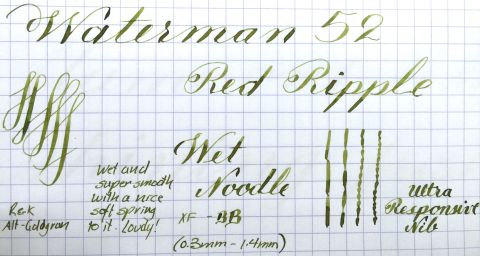 Waterman 52
Red Ripple
Wet
Noodle
XF - BB
(0.3mm - 1.4mm)
Wet and
super smooth
with a nice
soft spring
to it. Lovely!
R&K
Alt-Goldgrün
Ultra
Responsive
Nib